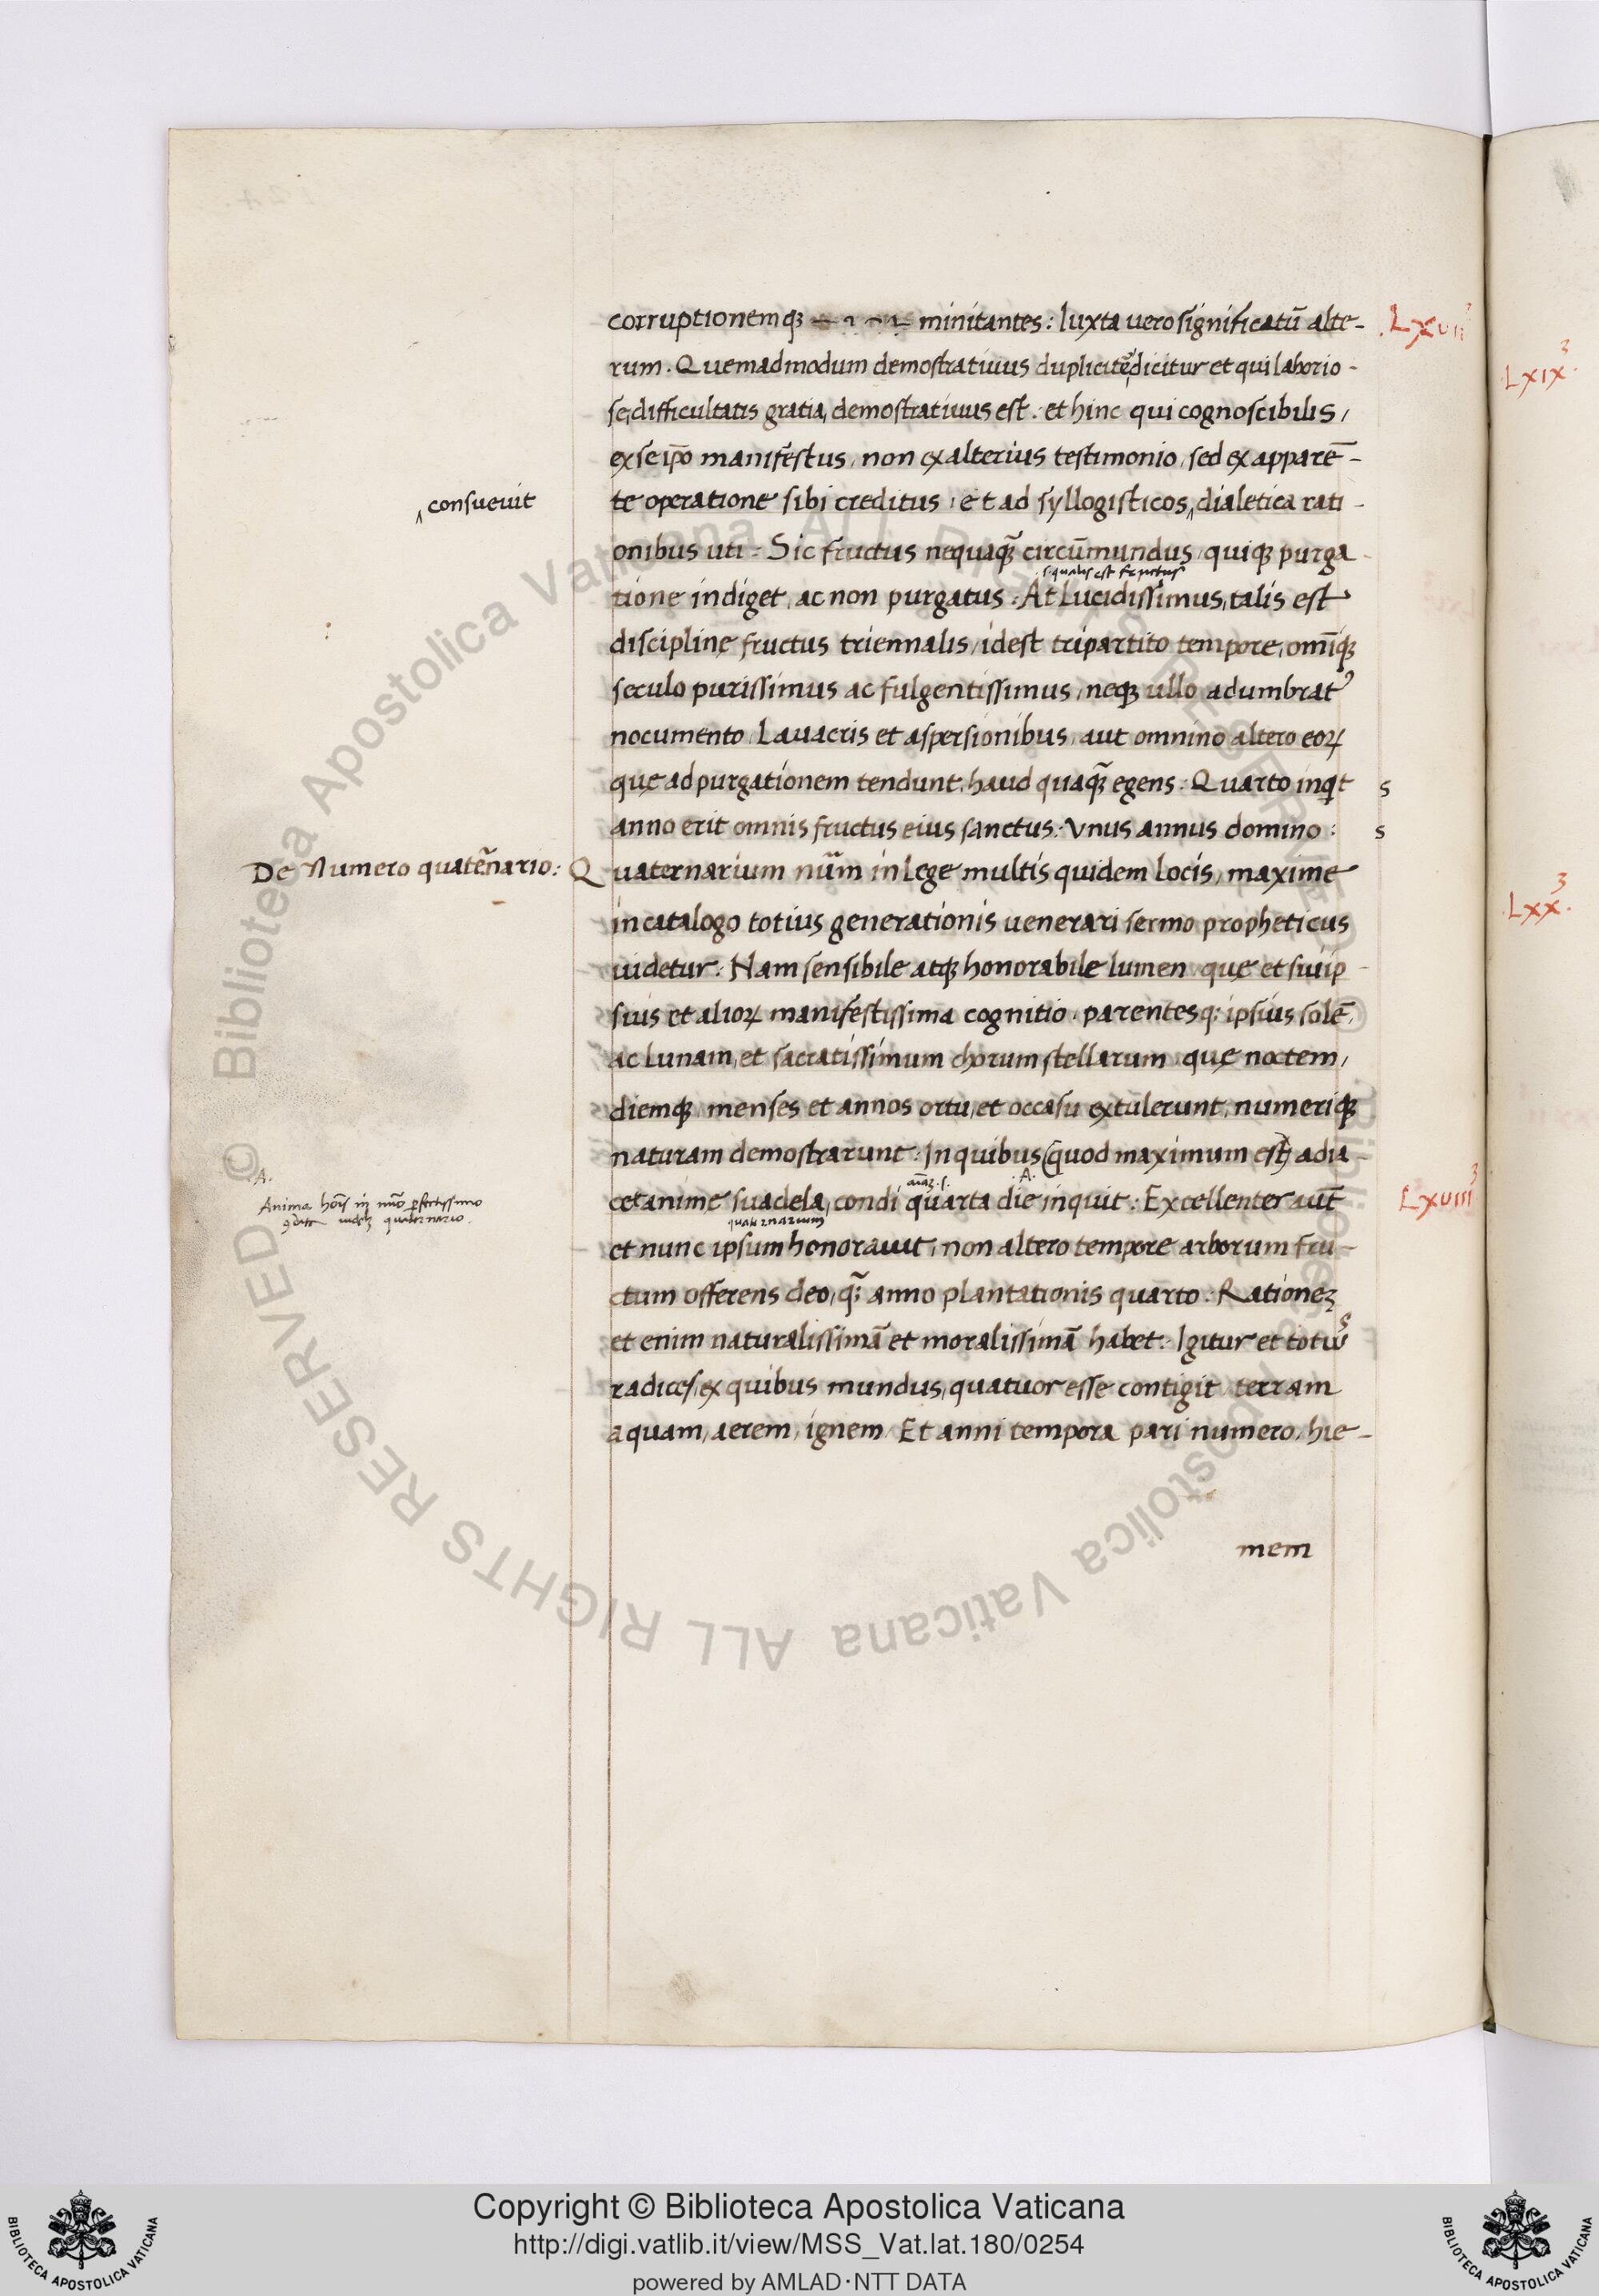 corruptionemqꝫ minitantes: Iuxta uero significatū alte-
.Lxuii
rum. Quemadmodum demostratiuus dupliciter dicitur et qui laborio-
Lxix³.
se difficultatis gratia, demostratiuus est. et hinc qui cognoscibilis,
ex se ip̄o manifestus, non ex alterius testimonio, sed ex apparē-
‸consueuit
te operatione sibi creditus, et ad syllogisticos‸ dialetica rati-
onibus uti. Sic fructus nequaqꝫ̄ circūmundus, quiqꝫ purga-
s. qualis est fructus
tione indiget, ac non purgatus. At Lucidissimus, talis est
disciplinę fructus triennalis, idest tripartito tempore, omīqꝫ
seculo purissimus ac fulgentissimus, neqꝫ ullo adumbrat᾿
nocumento. Lauacris et aspersionibus, aut omnino altero eoꝝ
quę ad purgationem tendunt, haud quaqꝫ̄ egens. Quarto inqt s
anno erit omnis fructus eius sanctus. Vnus annus domino: s
De Numero quatēnario: Quaternarium nūm in Lege multis quidem Locis, maxime
in catalogo totius generationis uenerari sermo propheticus
Lxx³.
uidetur. Nam sensibile atqꝫ honorabile lumen quę et sui ip-
sius et alioꝝ manifestissima cognitio, parentesq; ipsius solē,
ac Lunam, et sacratissimum chorum stellarum quę noctem,
diemqꝫ menses et annos ortu, et occasu extulerunt, numeriqꝫ
naturam demostrarunt. In quibus (quod maximum est) adia-
.A.
aīaꝫ .s. .A.
Anima hoīs in nūo perfectissimo
cet animę suadela, condi quarta die inquit. Excellenter aut̄
Lxuiii³
quaternario.
quaternarium
et nunc ipsum honorauit, non altero tempore arborum fru-
ctum offerens deo, q̄ꝫ anno plantationis quarto. Rationeꝫ
et enim naturalissimā et moralissimā habet. Igitur et totius
radices, ex quibus mundus, quatuor esse contigit terram
aquam, aerem, ignem. Et anni tempora pari numero, hie-
mem
© Biblioteca Apostolica Vaticana ALL RIGHTS RESERVED
© Biblioteca Apostolica Vaticana ALL RIGHTS RESERVED
BIBLIOTECA APOSTOLICA VATICANA
Copyright © Biblioteca Apostolica Vaticana
http://digi.vatlib.it/view/MSS_Vat.lat.180/0254
powered by AMLAD·NTT DATA
BIBLIOTECA APOSTOLICA VATICANA